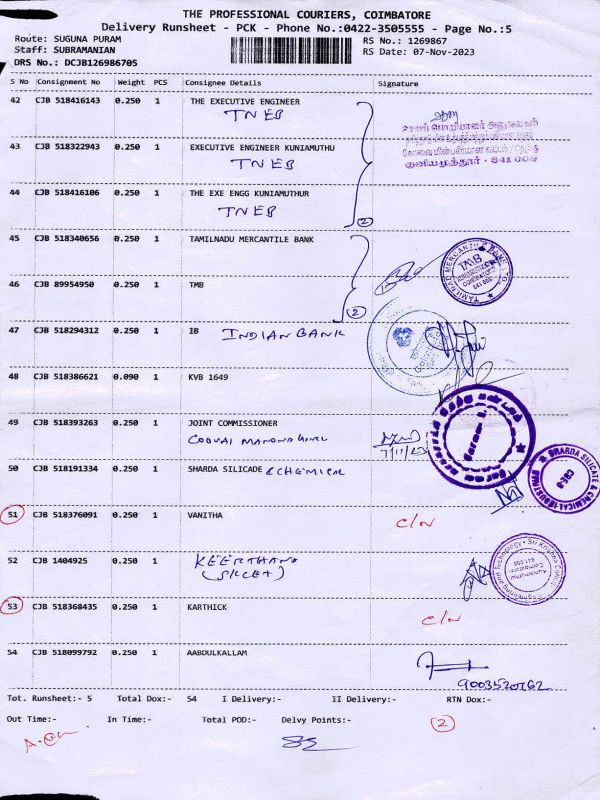 THE PROFESSIONAL COURIERS, COIMBATORE
Delivery Runsheet - PCK - Phone No.:0422-3505555 - Page No.:5
Route: SUGUNA PURAM RS No.: 1269867
Staff: SUBRAMANIAN RS Date: 07-Nov-2023
DRS No.: DCJB126986705
S No Consignment No Weight PCS Consignee Details Signature
42 CJB 518416143 0.250 1 THE EXECUTIVE ENGINEER
TNEB
43 CJB 518322943 0.250 1 EXECUTIVE ENGINEER KUNIAMUTHU
TNEB
44 CJB 518416106 0.250 1 THE EXE ENGG KUNIAMUTHUR
TNEB
2
45 CJB 518340656 0.250 1 TAMILNADU MERCANTILE BANK
46 CJB 89954950 0.250 1 TMB
2
47 CJB 518294312 0.250 1 IB INDIAN BANK
48 CJB 518386621 0.090 1 KVB 1649
49 CJB 518393263 0.250 1 JOINT COMMISSIONER
7/11/23
50 CJB 518191334 0.250 1 SHARDA SILICADE & CHEMICAL
51 CJB 518376091 0.250 1 VANITHA C/N
52 CJB 1404925 0.250 1 KEERTHANA
53 CJB 518368435 0.250 1 KARTHICK C/N
54 CJB 518099792 0.250 1 AABDULKALLAM
Tot. Runsheet:- 5 Total Dox:- 54 I Delivery:- II Delivery:- RTN Dox:-
Out Time:- In Time:- Total POD:- Delvy Points:- 2